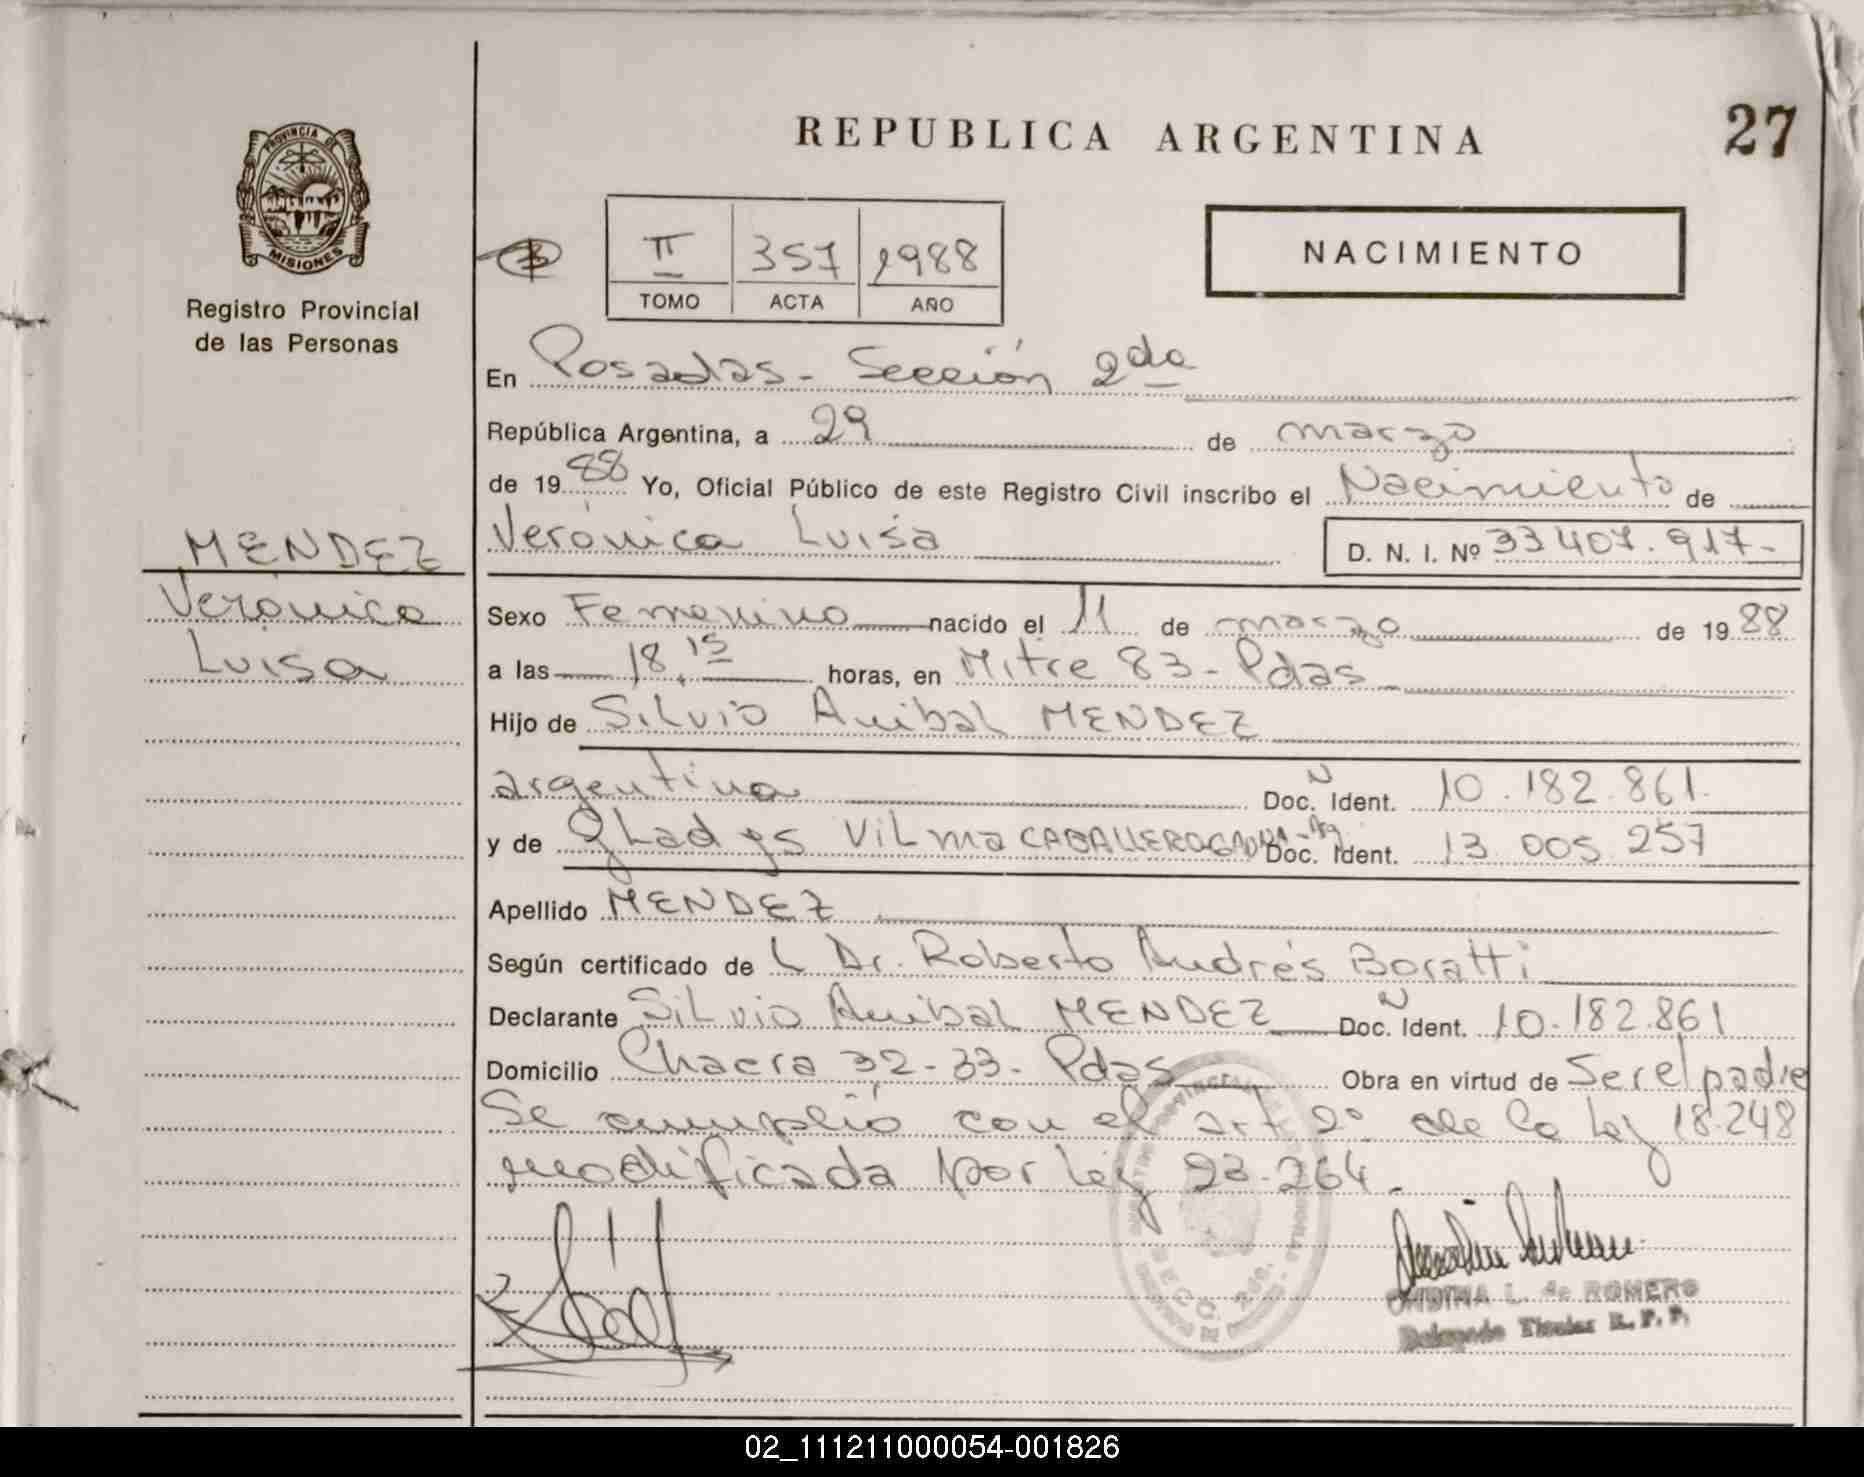 27
REPUBLICA ARGENTINA
PROVINCIA DE
MISIONES
Registro Provincial
de las Personas
II 357 1988
TOMO ACTA AÑO
NACIMIENTO
En Posadas - Sección 2da
República Argentina, a 29 de marzo
de 1988 Yo, Oficial Público de este Registro Civil inscribo el Nacimiento de
Verónica Luisa D. N. I. Nº 33407.917-
MENDEZ
Verónica
Luisa
Sexo Femenino nacido el 11 de marzo de 1988
a las 18.15 horas, en Mitre 83 - Pdas
Hijo de Silvio Anibal MENDEZ
argentina Doc. N Ident. 10.182.861.
y de Gladys Vilma CABALLERO Doc. Ident. 13.005.257
Apellido MENDEZ
Según certificado de L Dr. Roberto Andrés Boratti
Declarante Silvio Anibal MENDEZ Doc. N Ident. 10.182.861
Domicilio Chacra 32-33- Pdas Obra en virtud de Ser el padre
Se cumplió con el art 2º de la Ley 18.248
modificada por Ley 23.264.-
SECC. 2da.
ONDINA L. de ROMERO
Delegado Titular R. P. P.
02_111211000054-001826